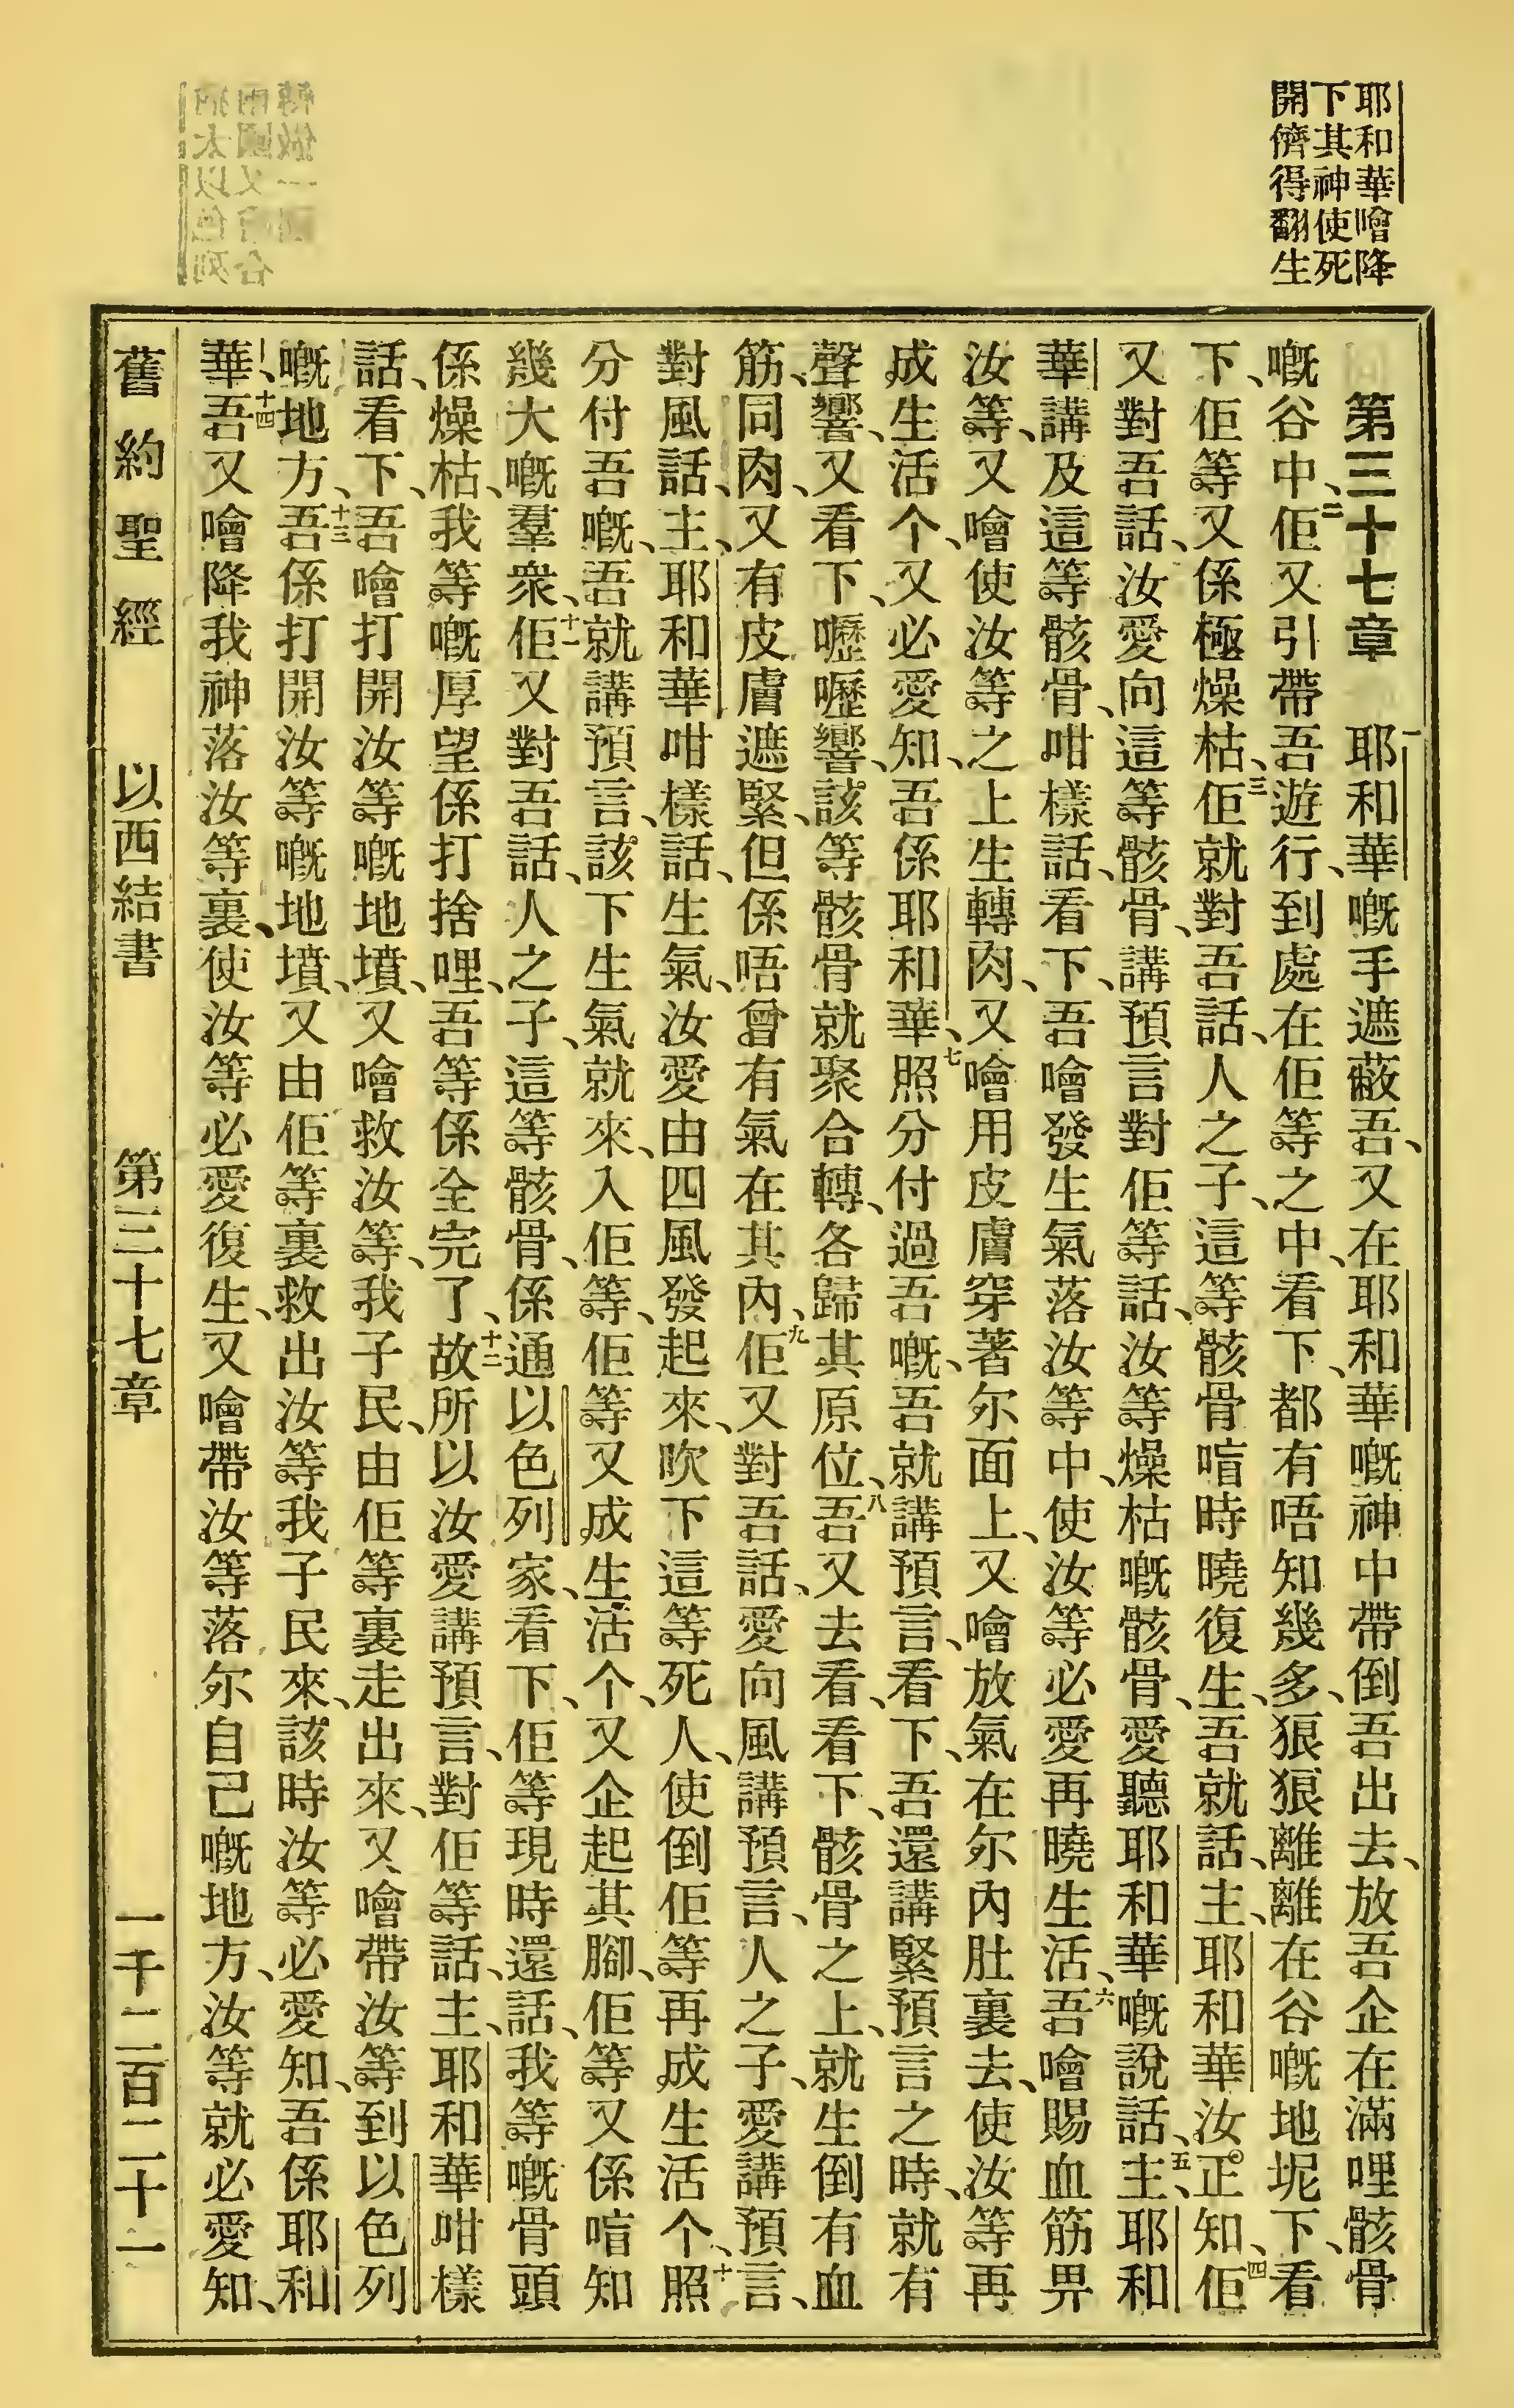 耶和華噲降
下其神使死
開儕得翻生
第三十七章　一耶和華嘅手遮蔽吾、又在耶和華嘅神中帶倒吾出去、放吾企在滿哩骸骨
嘅谷中、二佢又引帶吾遊行、到處在佢等之中、看下、都有唔知幾多、狼狼離離在谷嘅地坭下、看
下、佢等又係極燥枯、三佢就對吾話、人之子、這等骸骨㖠時曉復生、吾就話、主、耶和華汝正知、四佢
又對吾話、汝愛向這等骸骨、講預言對佢等話、汝等燥枯嘅骸骨、愛聽耶和華嘅說話、五主、耶和
華講及這等骸骨、咁樣話、看下、吾噲發生氣落汝等中、使汝等必愛再曉生活、六吾噲賜血筋畀
汝等、又噲使汝等之上生轉肉、又噲用皮膚穿著尔面上、又噲放氣在尔內肚裏去、使汝等再
成生活个、又必愛知、吾係耶和華、七照分付過吾嘅、吾就講預言、看下、吾還講緊預言之時、就有
聲響、又看下、嚦嚦響、該等骸骨就聚合轉、各歸其原位、八吾又去看、看下、骸骨之上、就生倒有血
筋、同肉、又有皮膚遮緊、但係唔曾有氣在其內、九佢又對吾話、愛向風講預言、人之子、愛講預言、
對風話、主、耶和華咁樣話、生氣、汝愛由四風發起來、吹下這等死人、使倒佢等再成生活个、十照
分付吾嘅、吾就講預言、該下生氣就來、入佢等、佢等又成生活个、又企起其腳、佢等又係㖠知
幾大嘅羣衆、十一佢又對吾話、人之子、這等骸骨、係通以色列家、看下、佢等現時還話、我等嘅骨頭
係燥枯、我等嘅厚望係打捨哩、吾等係全完了、十二故所以汝愛講預言、對佢等話、主、耶和華咁樣
話、看下、吾噲打開汝等嘅地墳、又噲救汝等、我子民、由佢等裏走出來、又噲帶汝等到以色列
嘅地方、十三吾係打開汝等嘅地墳、又由佢等裏救出汝等我子民來、該時汝等必愛知、吾係耶和
華、十四吾又噲降我神落汝等裏、使汝等必愛復生、又噲帶汝等落尔自己嘅地方、汝等就必愛知、
舊約聖經　以西結書　第三十七章　一千二百二十一